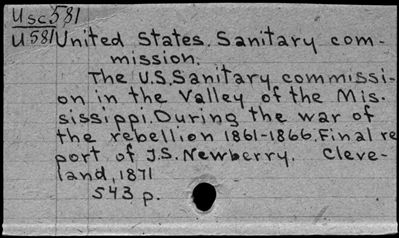 Usc581
U581 United States. Sanitary com-
mission.
The U.S. Sanitary commissi-
on in the Valley of the Mis-
sissippi. During the war of
the rebellion 1861-1866. Final re
port of J.S. Newberry. Cleve-
land, 1871
543 p.